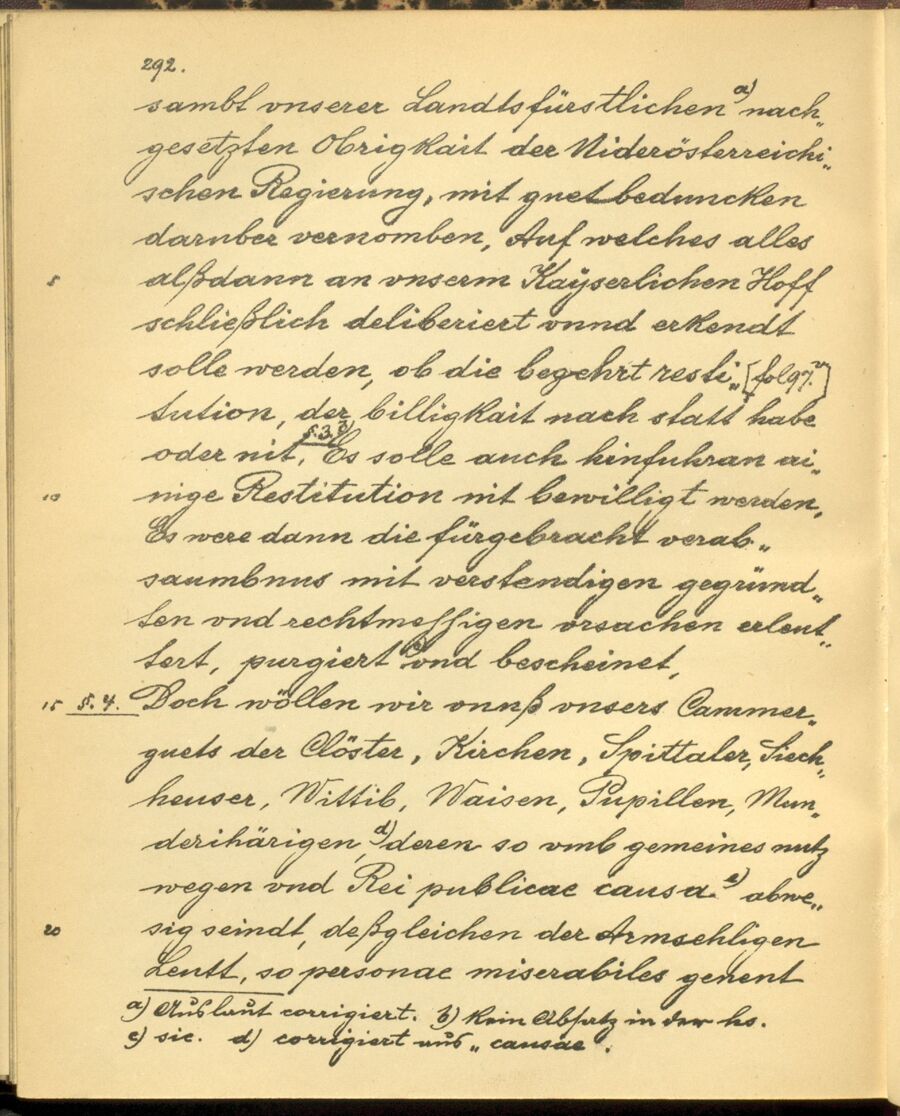 292.
sambt vnserer Landtsfürstlichen a) nach„
gesetzten Obrigkait der Niderösterreichi„
schen Regierung, mit guetbeduncken
daruber vernomben, Auf welches alles
5 alßdann an vnserm Kaÿserlichen Hoff
schließlich deliberiert vnnd erkendt
solle werden, ob die begehrt resti„ [fol 97.v]
tution, der billigkait nach statt habe
oder nit, §.3. b) Es solle auch hinfuhran ai„
10 nige Restitution nit bewilligt werden,
Es were dann die fürgebracht verab„
saumbnus mit verstendigen gegründ„
ten vnd rechtmessigen vrsachen erleut„
tert, purgiert c) vnd bescheinet,
15 §. 4. Doch wöllen wir vnnß vnsers Cammer„
guets der Clöster, Kirchen, Spittaler, Siech„
heuser, Wittib, Waisen, Pupillen, Mun„
derihärigen, d) deren so vmb gemeines nutz
wegen vnd Rei publicae causa e) abwe„
20 sig seindt, deßgleichen der Armsehligen
Leutt, so personae miserabiles genent
a) Auslaut corrigiert. b) Kein Absatz in der hs.
c) sic. d) corrigiert aus „causae".